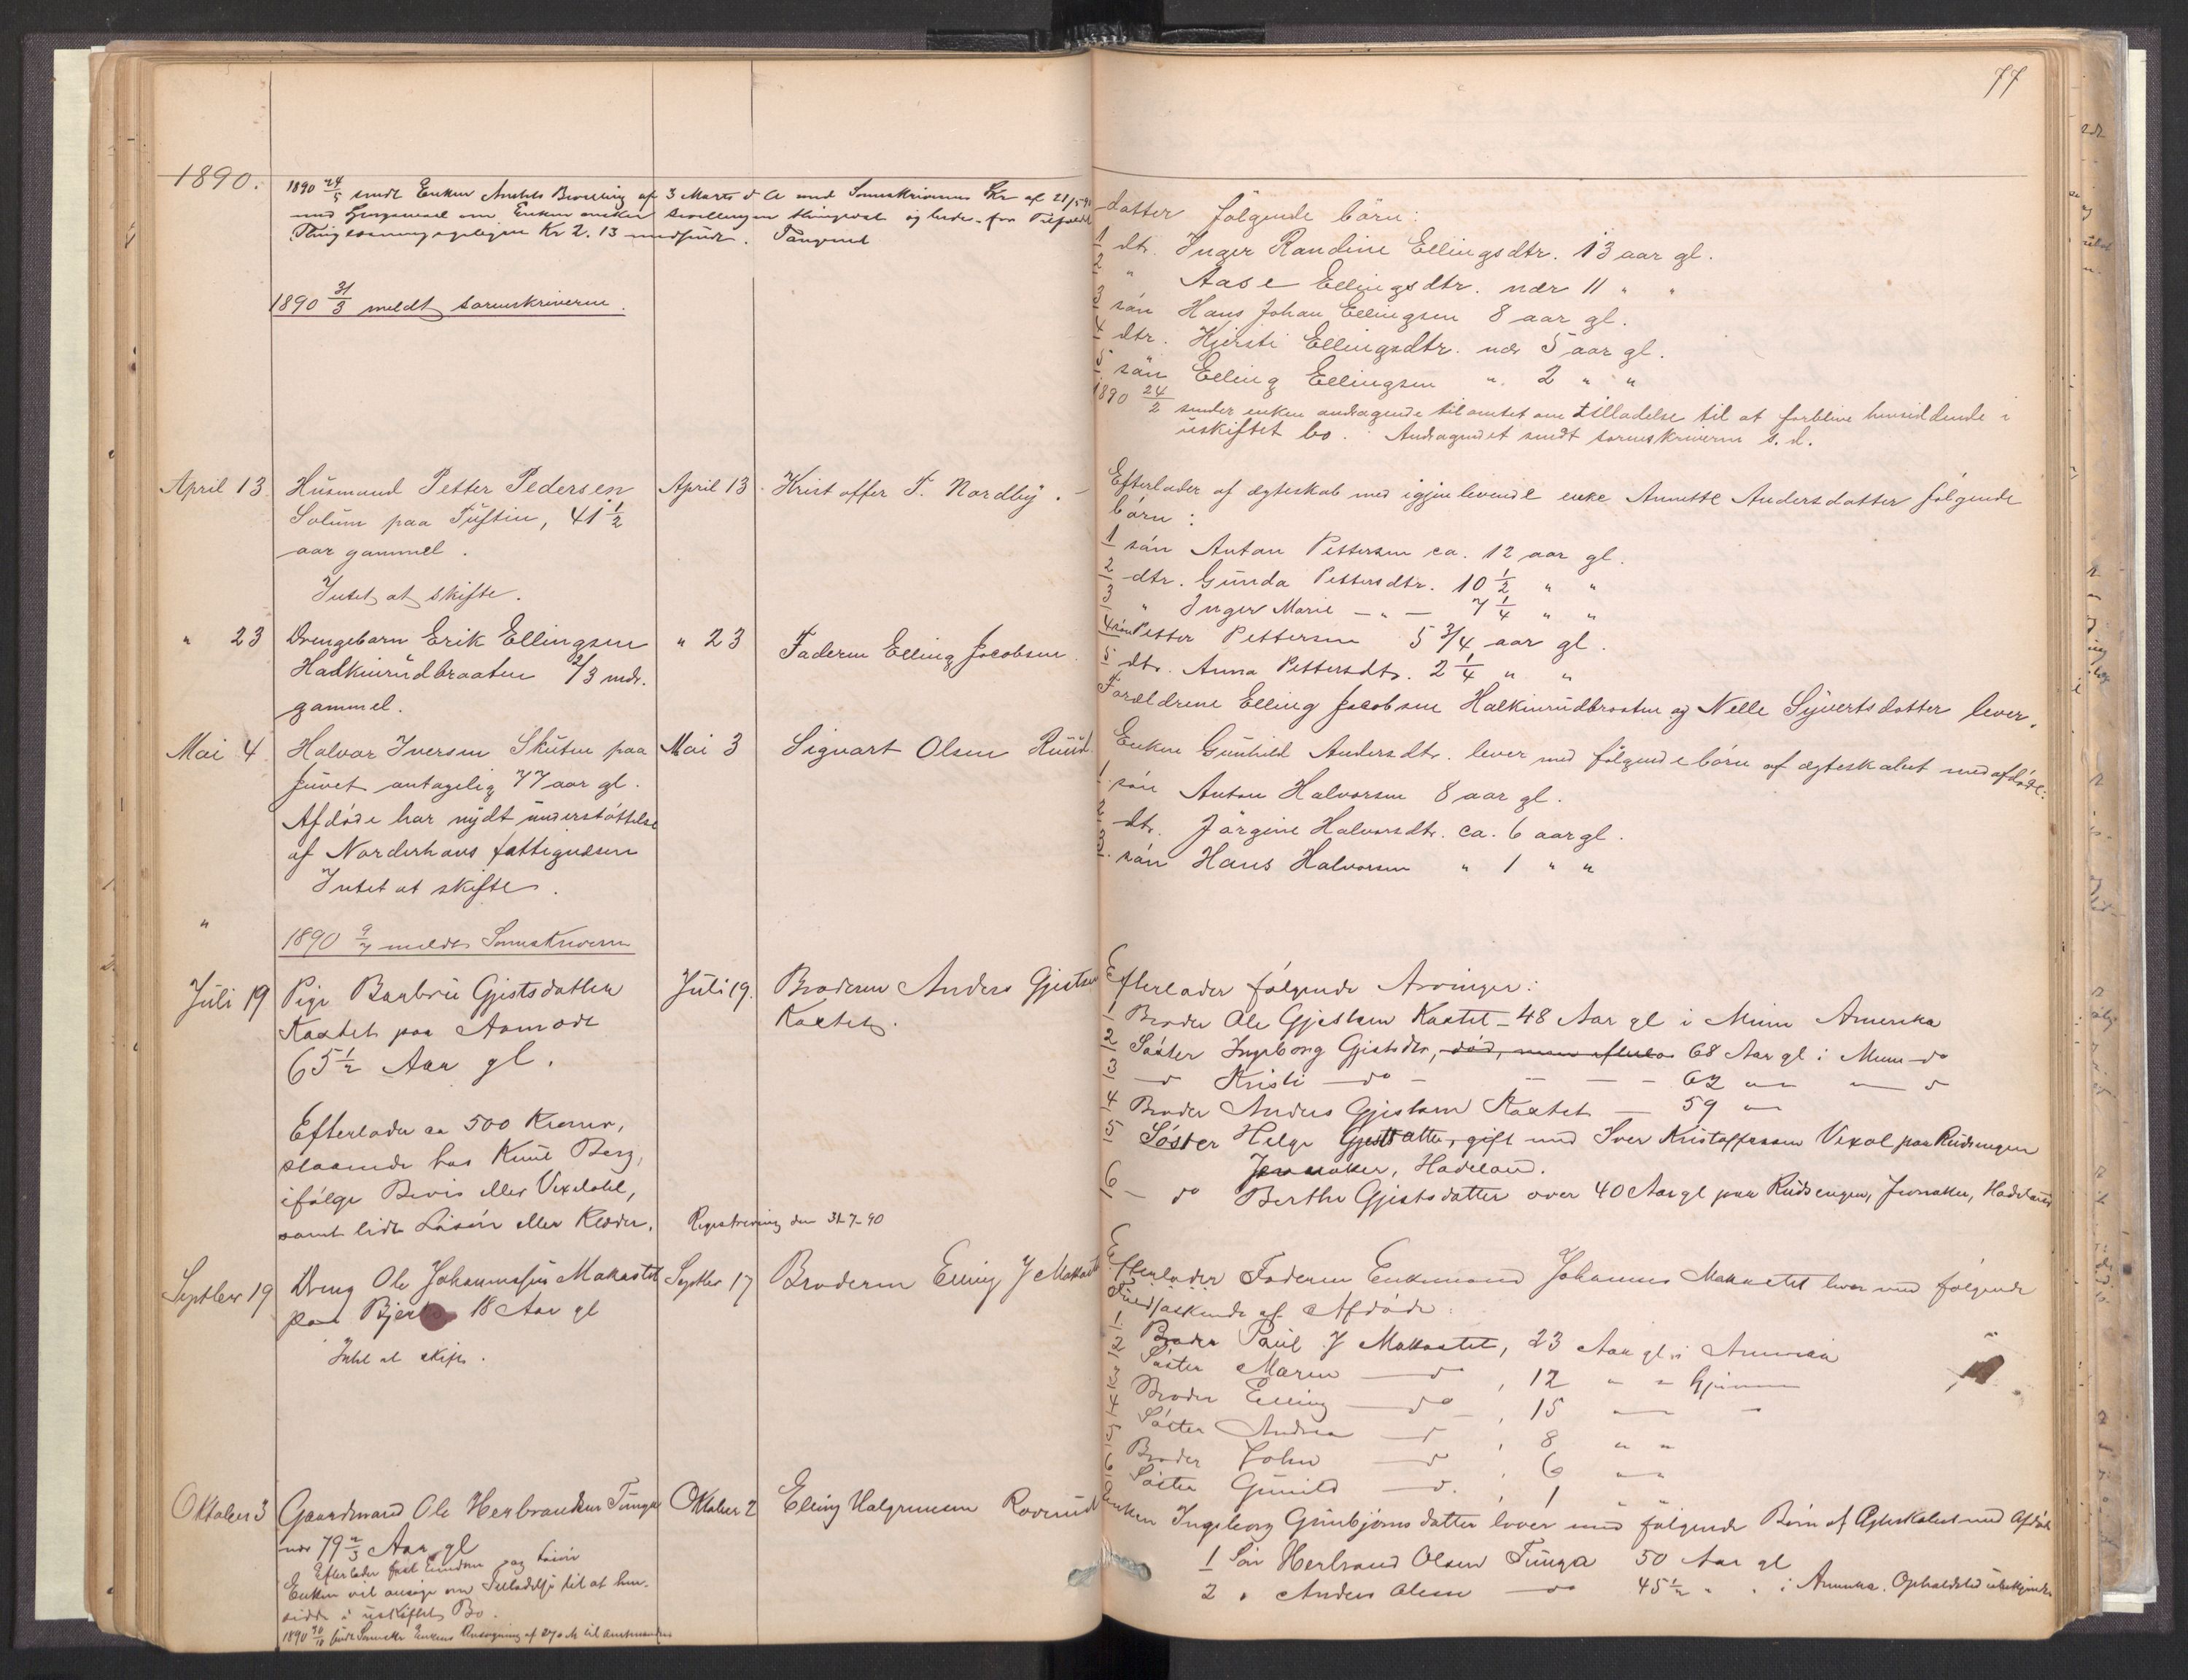 77
1890.
1890 24/5 sendt Enken Amtets Bevilling af 3 Marts d A med Sorenskriverens Skr af 21/5 90
med om Enken ønsker bevillingen thinglæst og beder for Tilfælde
Kr 2.13 indsendt.
1890 31/3 meldt sorenskriveren.
datter følgende børn:
1 dtr. Inger Randine Ellingsdtr. 13 aar gl.
2 " Aase Ellingsdtr. nær 11 " "
3 søn Hans Johan Ellingsen 8 aar gl.
4 dtr. Kjersti Ellingsdtr. nær 5 aar gl.
5 søn Elling Ellingsen " 2 " "
1890 24/2 sender enken andragende til amtet om tilladelse til at forblive hensiddende i
uskiftet bo. Andragendet sendt sorenskriveren s. d.
April 13. Husmand Petter Pedersen April 13. Kristoffer T. Nordby.
Solum paa Tuftin, 41 1/2
aar gammel.
Intet at skifte.
Efterlader af ægteskab med igjenlevende enke Annette Andersdatter følgende
børn:
1 søn Anton Pettersen ca. 12 aar gl.
2 dtr. Gunda Pettersdtr. 10 1/2 " "
3 " Inger Marie — " — 7 1/4 " "
4 søn Petter Pettersen 5 3/4 aar gl.
5 dtr. Anna Pettersdtr. 2 1/4 " "
" 23 Drengebarn Erik Ellingsen " 23 Faderen Elling Jacobsen
Halkinrudbraaten 2/3 mdr.
gammel.
Forældrene Elling Jacobsen Halkinrudbraaten og Nelle Syvertsdatter lever.
Mai 4. Halvor Iversen Skuten paa Mai 3 Sigvart Olsen Ruud.
Juvet antagelig 77 aar gl.
Afdøde har nydt understøttelse
af Norderhovs fattigvæsen
Intet at skifte.
" 1890 9/7 meldt Sorenskriveren
Enken Gunhild Andersdtr. lever med følgende børn af ægteskabet med afdøde:
1. søn Anton Halvorsen 8 aar gl.
2. dtr. Jørgine Halvorsdtr. ca. 6 aar gl.
3. søn Hans Halvorsen " 1 " "
Juli 19 Pige Barbru Gjestsdatter Juli 19. Broderen Anders Gjestsen
Kastet paa Aamodt Kastet.
65 1/2 Aar gl.
Efterlader ca 500 Kroner,
staaende hos Knut Berg,
ifølge Bevis eller Vexelobl,
samt lidt Løsøre eller Klæder. Registrering den 31-7-90
Efterlader følgende Arvinger:
1 Broder Ole Gjestsen Kastet — 48 Aar gl i Minn Amerika
2 Søster Ingeborg Gjestsdtr, død, men efterla 68 Aar gl i Minn do
3 — do Kristi — do — — — 62 — — do
4 Broder Anders Gjestsen Kastet — 59 —
5 Søster Helge Gjestsdatter, gift med Iver Kristoffersen Vexal paa Rudsengen
Jevnaker, Hadeland.
6 — do Berthe Gjestsdatter over 40 Aar gl paa Rudsengen, Jevnaker, Hadeland
Septber 19 Dreng Ole Johannessen Makastet Septber 17 Broderen Elling J Makastet
paa Bjerke 18 Aar gl
Intet at skifte.
Efterlader Faderen Enkemand Johannes Makastet lever med følgende
Fuldsøskende af Afdøde:
1. Broder Paul J Makastet, 23 Aar gl. i Amerika
2 Søster Maren — do , 12 " " Hjemme
3 Broder Elling — do — , 15 — "
4 Søster Andrea — do , 8 " "
5 Broder John — do , 6 " "
6 Søster Gunild — do. , 1
Oktober 3 Gaardmand Ole Herbrandsen Tunga Oktober 2 Elling Halgrimsen Roverud
nær 79 2/3 Aar gl
Efterlader fast Eiendom og Løsøre
Enken vil ansøge om Tilladelse til at hen-
sidde i uskiftet Bo.
1890 30/10 sendt Sorenskr Enkens Ansøgning af 27 d M til Amtmanden
Enken Ingeborg Gunbjørnsdatter lever med følgende Børn af Ægteskabet med Afdøde
1 Søn Herbrand Olsen Tunga 50 Aar gl
2 " Anders Olsen — do 45 1/2 " " i Amerika. Opholdsted ubekjendt